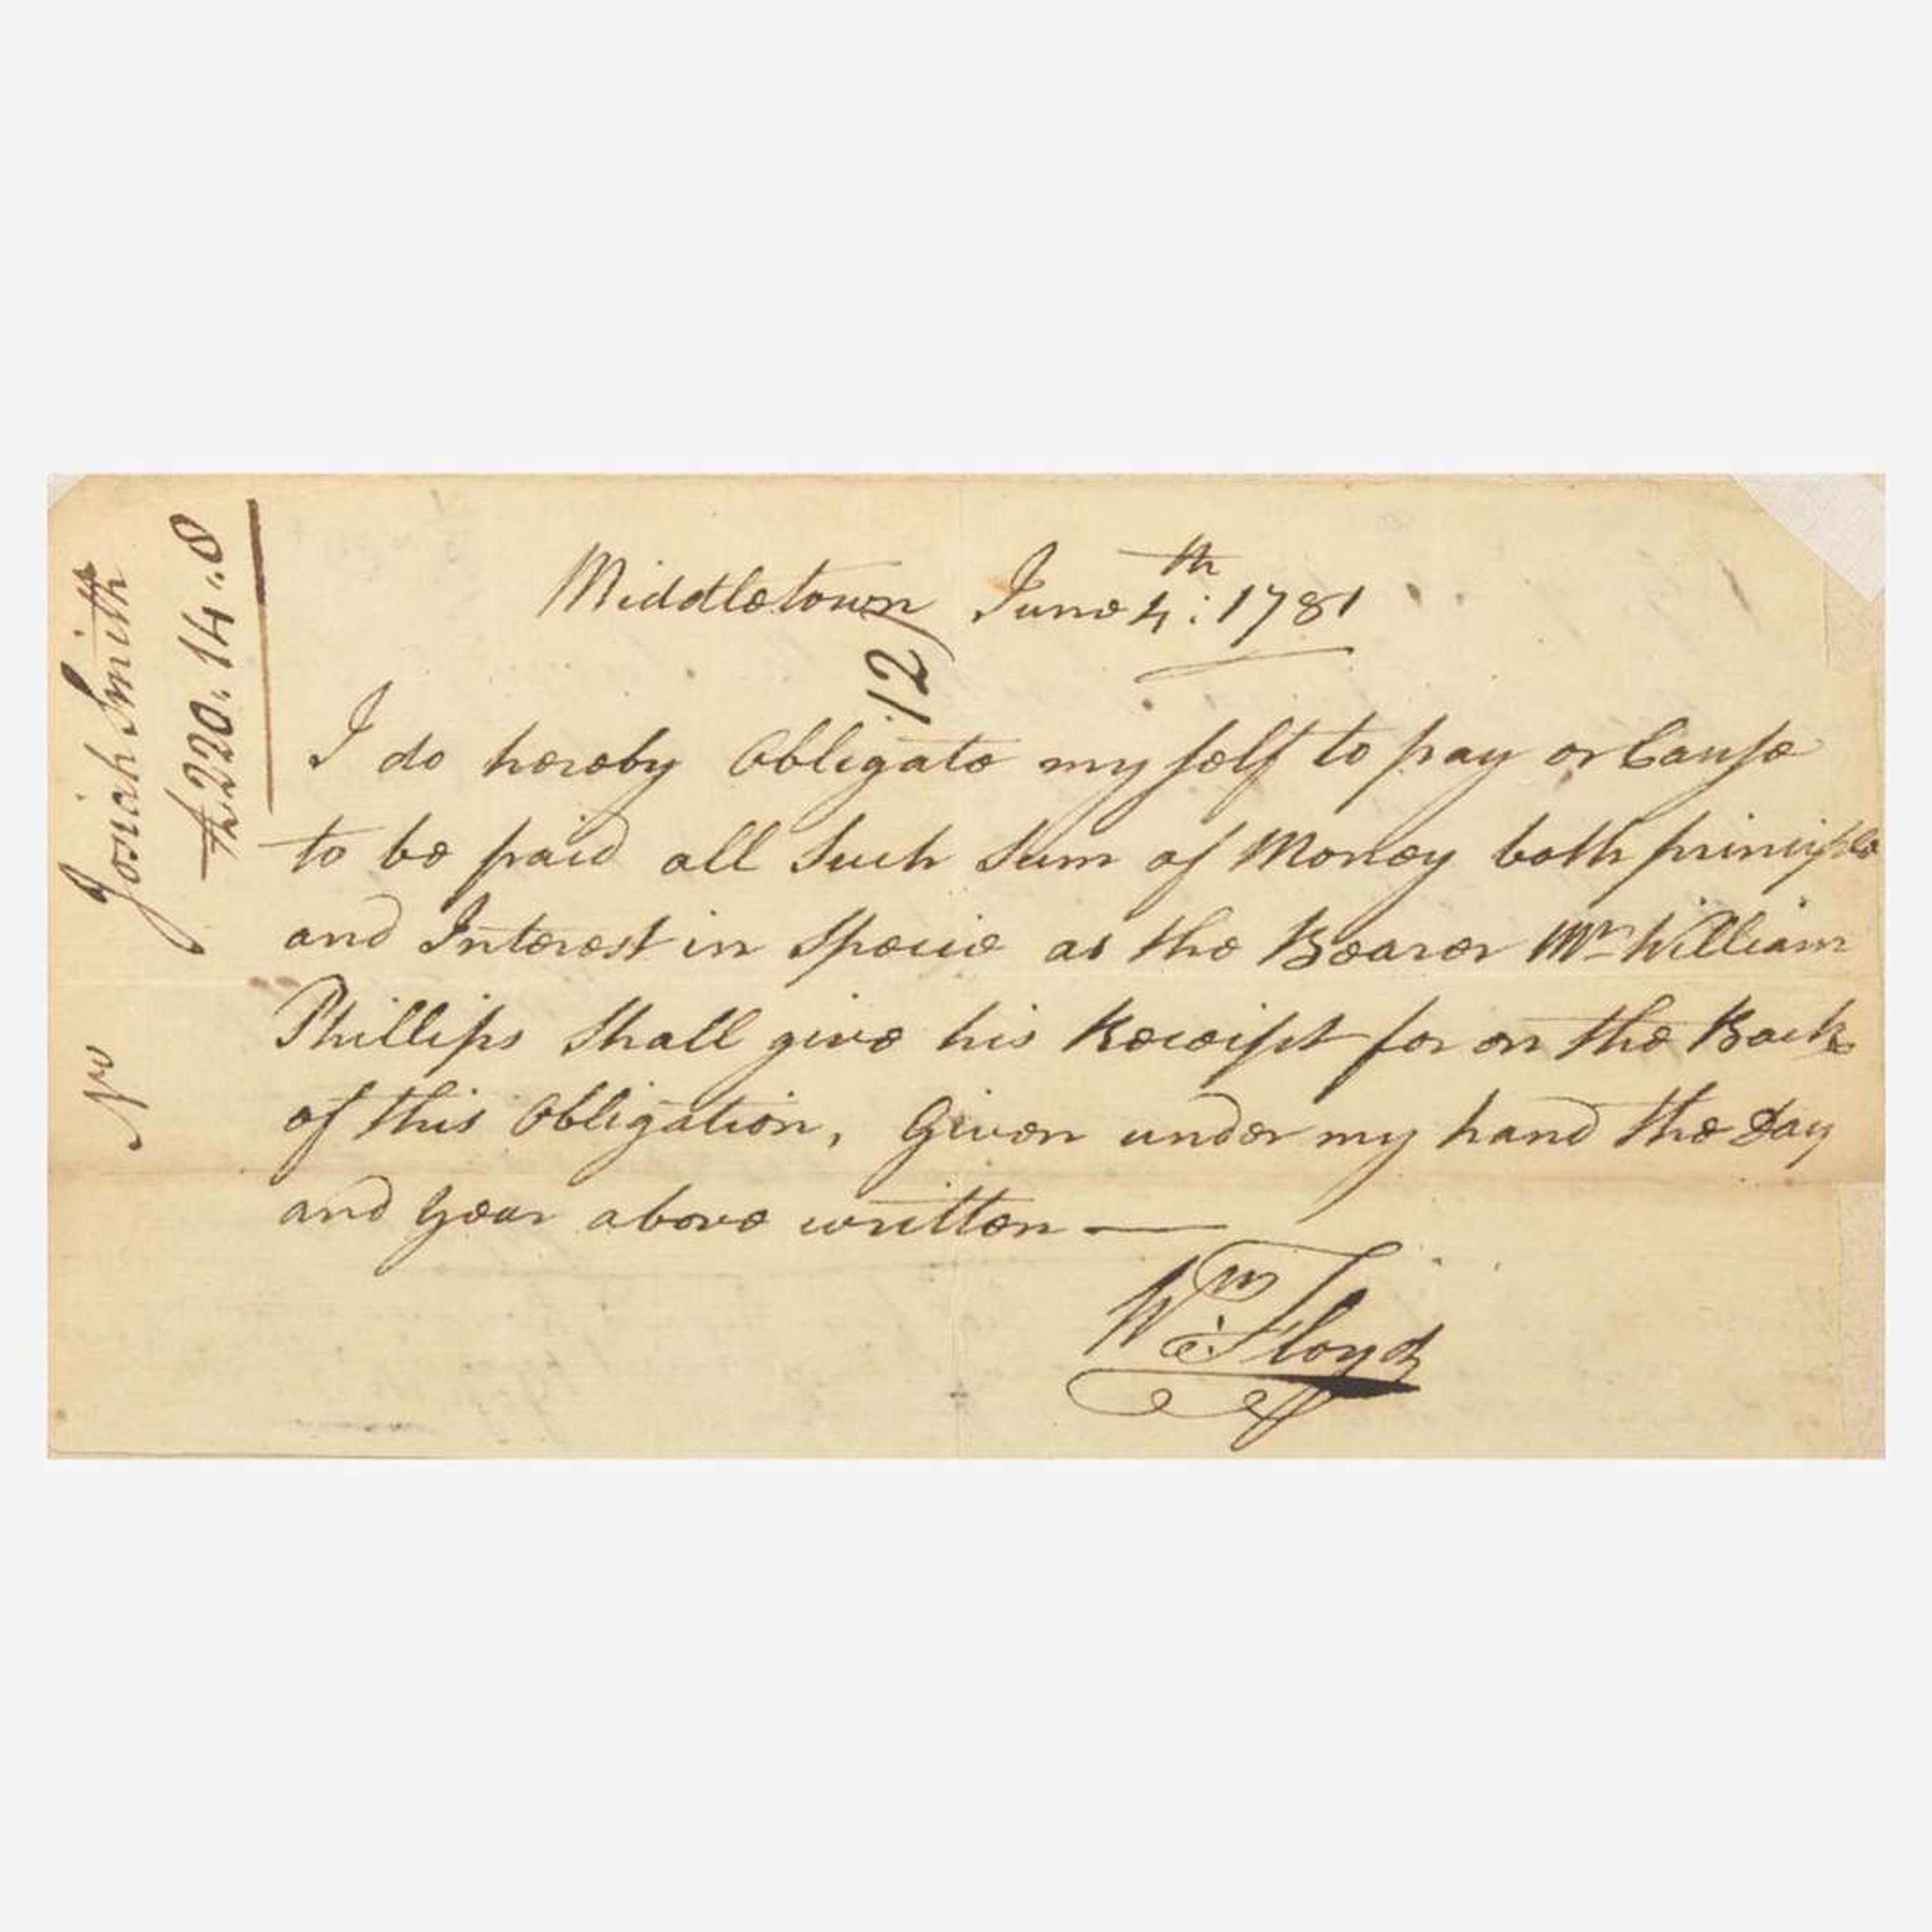 Middletown June 4th: 1781
12
I do hereby Obligate my self to pay or Cause
to be paid all Such Sum of Money both principle
and Interest in Specie as the Bearer Mr William
Phillips Shall give his Receipt for on the Back
of this Obligation, Given under my hand the Day
and Year above written —
Wm: Floyd
Josiah Smith
£220.. 14..8